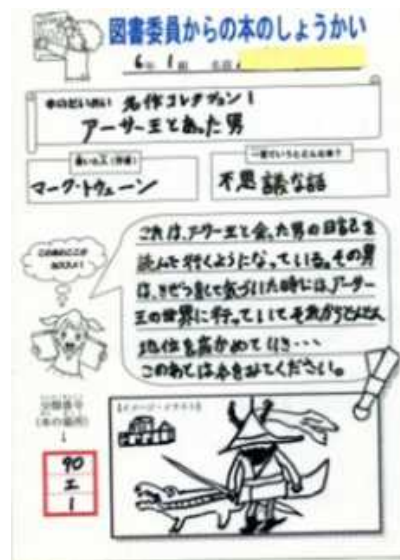 図書委員からの本のしょうかい
6年 1組 名前
本のだいめい 名作コレクション1
アーサー王とあった男
書いた人(作者)
一言でいうとどんな本?
マーク・トウェーン
不思議な話
この本のここがおススメ!
これは、アーサー王と会った男の日記を
読んで行くようになっている。その男
は、きぜつをして気づいた時には、アーサー
王の世界に行っていてそれからどんどん
地位を高かめていき・・・
このあとは本をみてください。
分類番号
(本の場所)
↓
【イメージ・イラスト】
90
エ
1